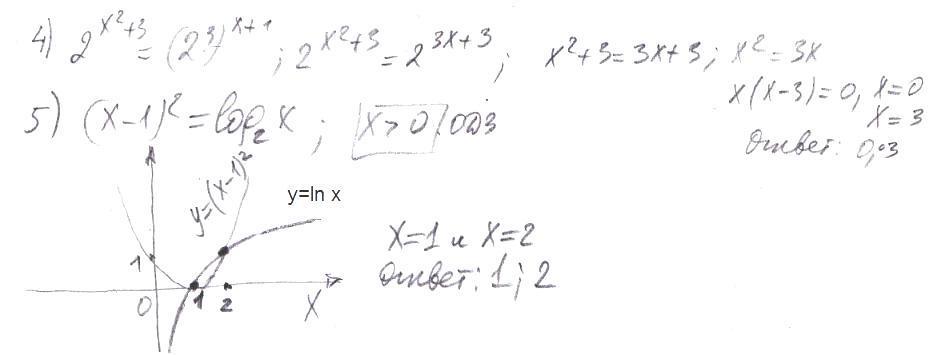 4) 2^(x²+3) = (2³)^(x+1) ; 2^(x²+3) = 2^(3x+3) ; x²+3=3x+3 ; x²=3x
x(x-3)=0, x=0
x=3
Ответ: 0; 3
5) (x-1)² = log₂x ; x>0 ОДЗ
y=(x-1)²
y=ln x
1
0
1
2
X
x=1 и x=2
Ответ: 1; 2